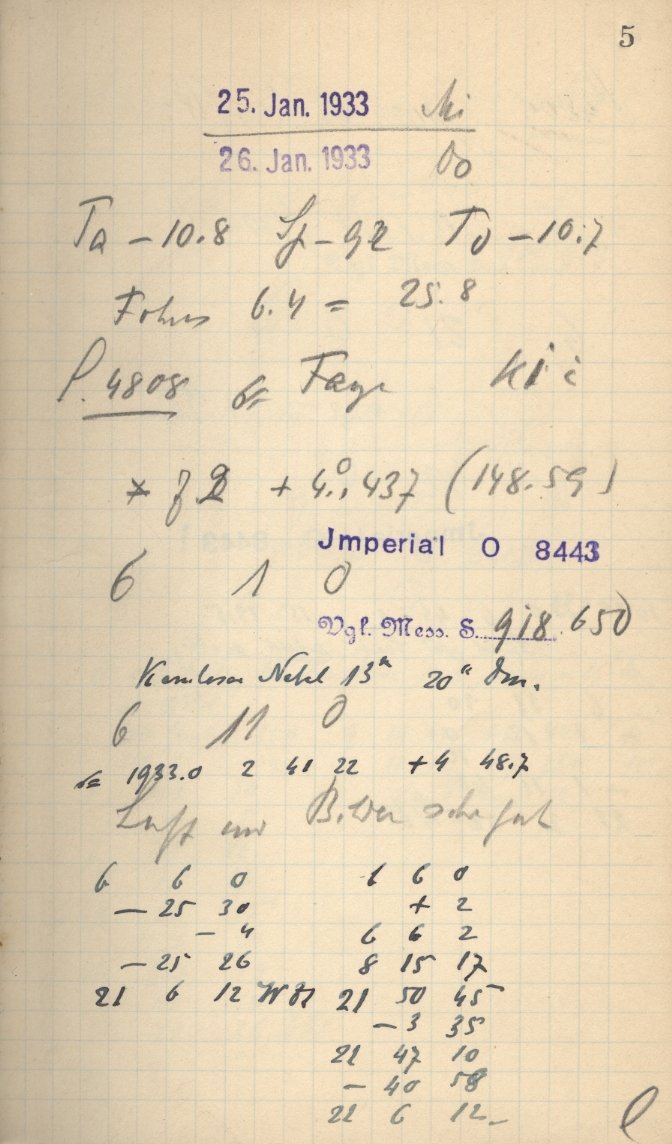 5
25. Jan. 1933 Mi
26. Jan. 1933 Do
Ta – 10.8 Sp – 92 To – 10.7
Fokus 6.4 = 25.8
P. 4808 Faye
+ 4°.437 (148.59)
Jmperial O 8443
6 1 0
Vgl. Mess. S. 918.650
Kernloser Nebel 13ᵐ 20" Dm.
6 11 0
1933.0 2 41 22 +4 48.7
Luft und Bilder sehr gut
6 6 0 6 6 0
– 25 30 + 2
– 4 6 6 2
– 25 26 8 15 17
21 6 12 21 50 45
– 3 35
21 47 10
– 40 58
21 6 12